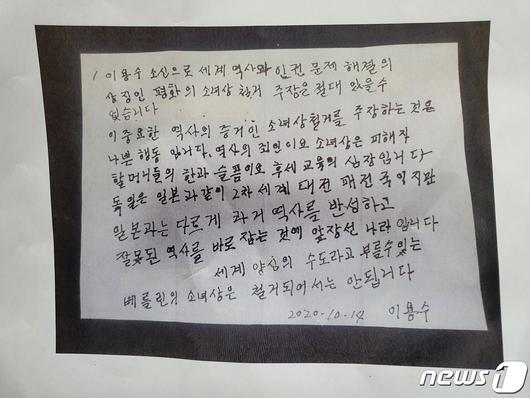 이용수 소신으로 세계 역사와 인권 문제 해결의
상징인 평화의 소녀상 철거 주장은 절대 있을수
없습니다
이 중요한 역사의 증거인 소녀상철거를 주장하는 것은
나쁜 행동 입니다. 역사의 죄인이요 소녀상은 피해자
할머니들의 한과 슬픔이요 후세 교육의 심장입니다
독일은 일본과같이 2차 세계 대전 패전국 일지만
일본과는 다르게 과거 역사를 반성하고
잘못된 역사를 바로 잡는 것에 앞장선 나라 입니다
세계 양심의 수도라고 부를수있는
베를린의 소녀상은 철거되어서는 안됩니다
2020-10-14 이용수
news1